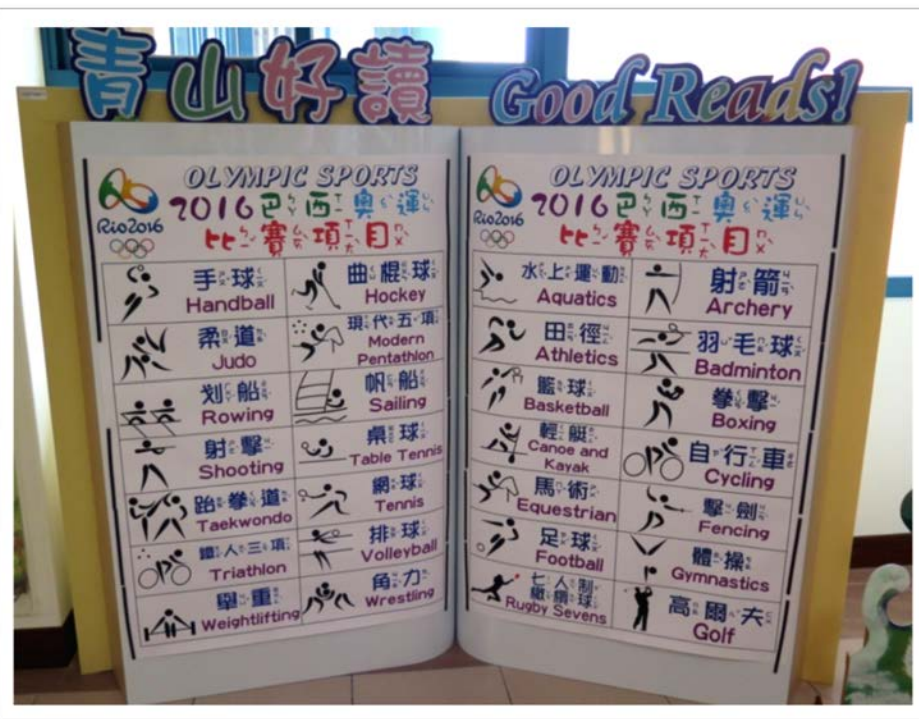 青山好讀 Good Reads!
OLYMPIC SPORTS
Rio2016
2016巴西奧運
比賽項目
手球
Handball
曲棍球
Hockey
柔道
Judo
現代五項
Modern
Pentathlon
划船
Rowing
帆船
Sailing
射擊
Shooting
桌球
Table Tennis
跆拳道
Taekwondo
網球
Tennis
鐵人三項
Triathlon
排球
Volleyball
舉重
Weightlifting
角力
Wrestling
OLYMPIC SPORTS
Rio2016
2016巴西奧運
比賽項目
水上運動
Aquatics
射箭
Archery
田徑
Athletics
羽毛球
Badminton
籃球
Basketball
拳擊
Boxing
輕艇
Canoe and
Kayak
自行車
Cycling
馬術
Equestrian
擊劍
Fencing
足球
Football
體操
Gymnastics
七人制
橄欖球
Rugby Sevens
高爾夫
Golf